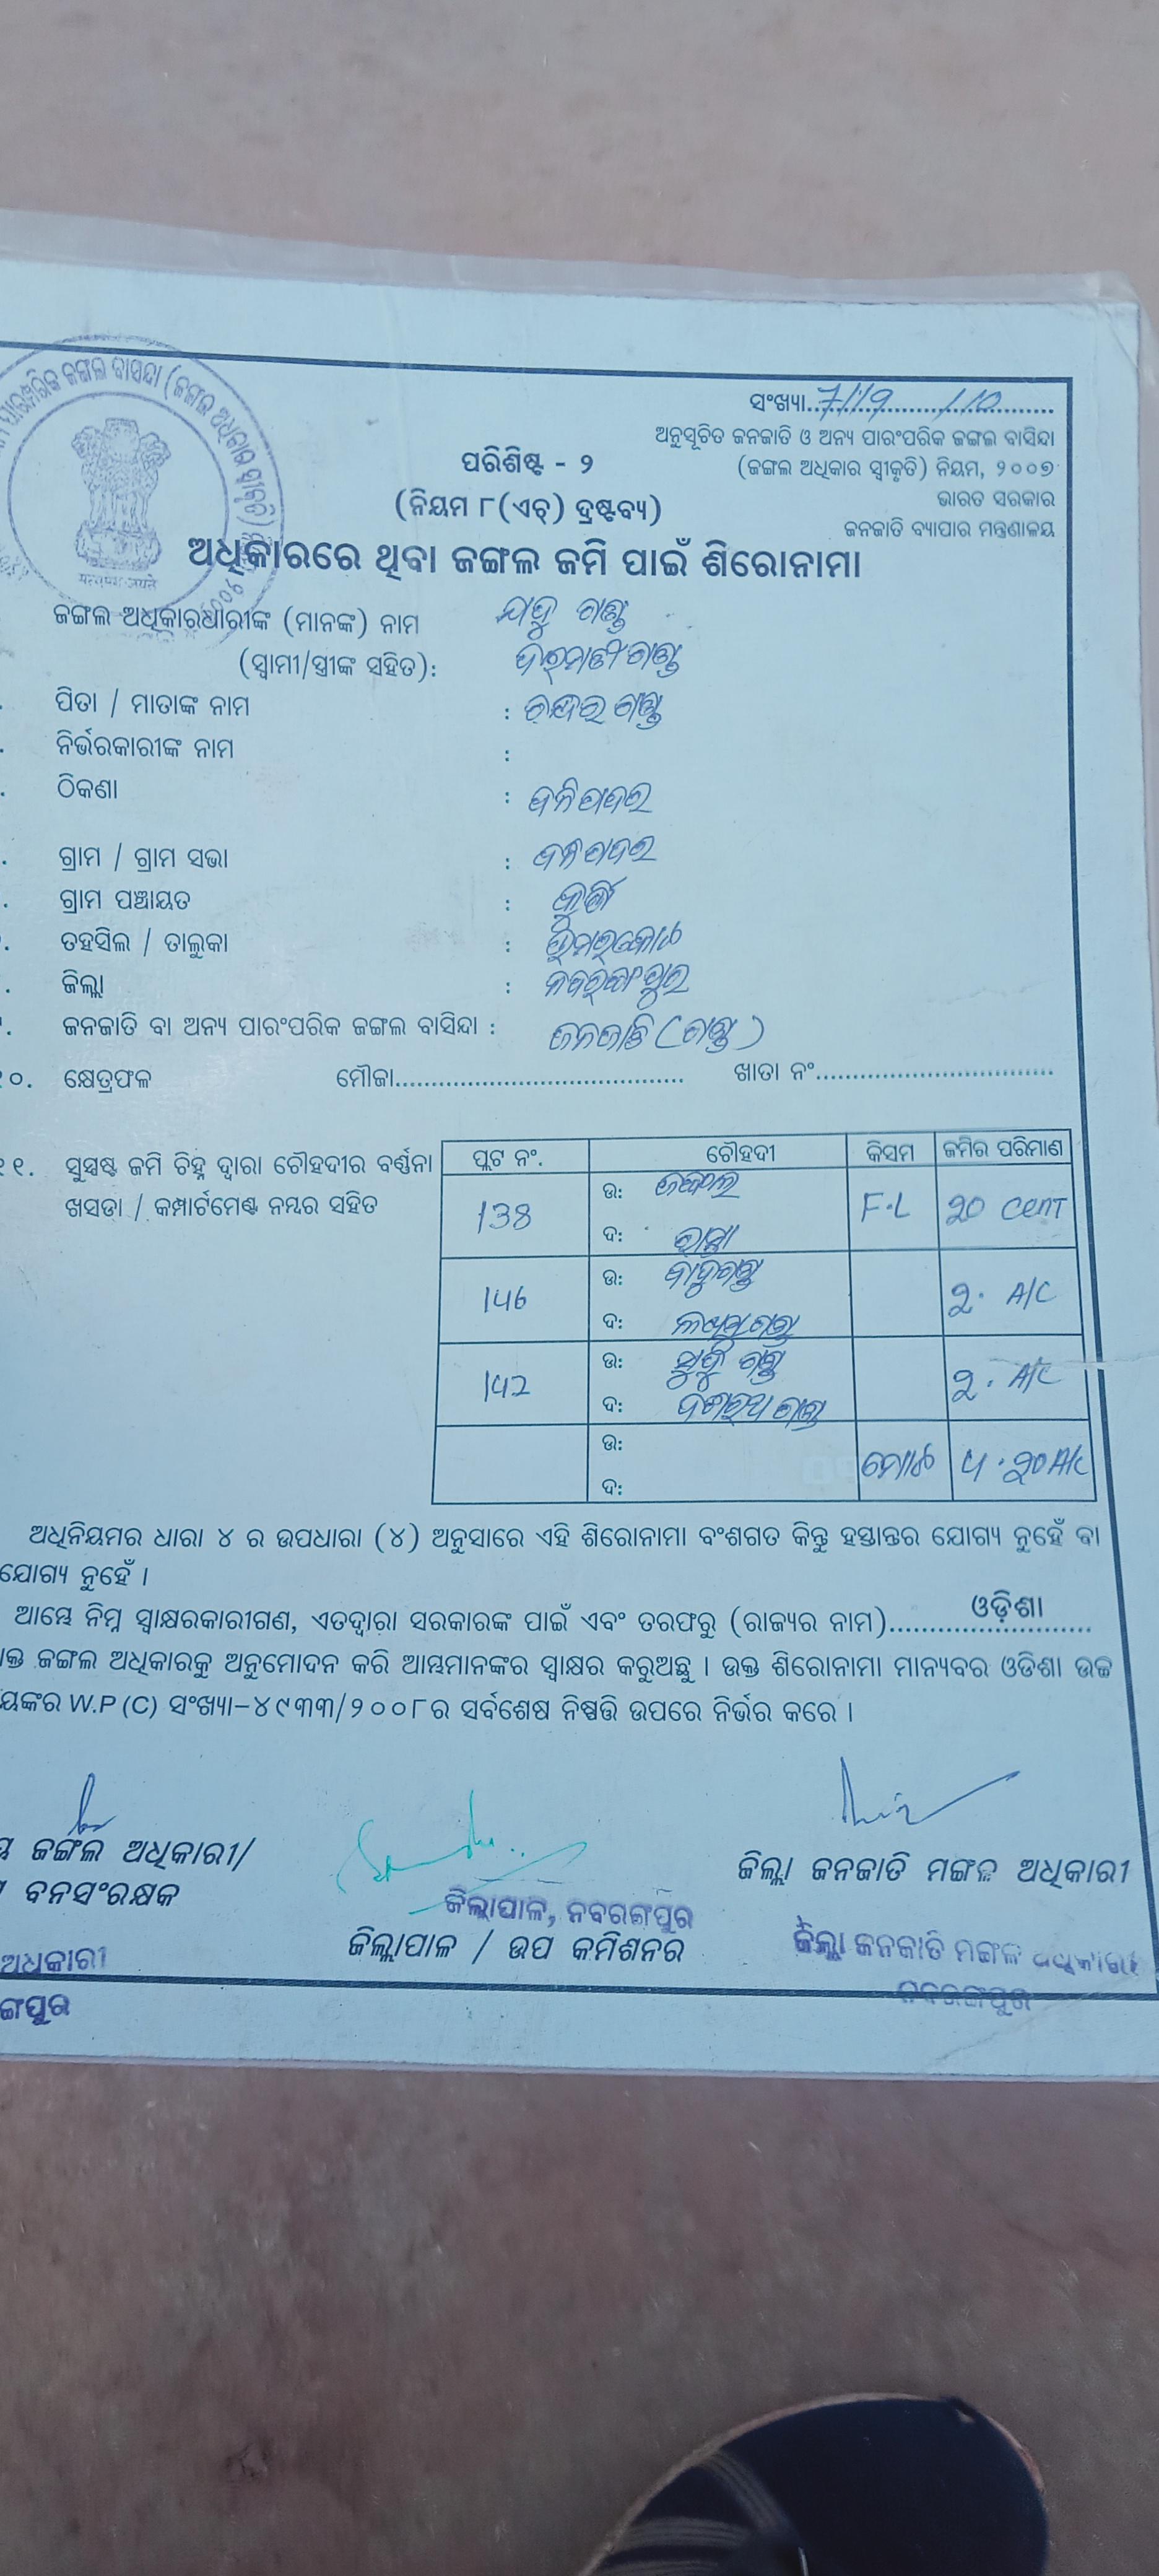 ପାରମ୍ପରିକ ଜଙ୍ଗଲ ବାସିନ୍ଦା (ଜଙ୍ଗଲ ଅଧିକାର ସ୍ୱୀକୃତି)
सत्यमेव जयते
ସଂଖ୍ୟା..7119......110......
ଅନୁସୂଚିତ ଜନଜାତି ଓ ଅନ୍ୟ ପାରଂପରିକ ଜଙ୍ଗଲ ବାସିନ୍ଦା
(ଜଙ୍ଗଲ ଅଧିକାର ସ୍ୱୀକୃତି) ନିୟମ, ୨୦୦୭
ଭାରତ ସରକାର
ଜନଜାତି ବ୍ୟାପାର ମନ୍ତ୍ରଣାଳୟ
ପରିଶିଷ୍ଟ - ୨
(ନିୟମ ୮(ଏଚ୍) ଦ୍ରଷ୍ଟବ୍ୟ)
ଅଧିକାରରେ ଥିବା ଜଙ୍ଗଲ ଜମି ପାଇଁ ଶିରୋନାମା
ଜଙ୍ଗଲ ଅଧିକାରଧାରୀଙ୍କ (ମାନଙ୍କ) ନାମ ଯଦୁ ଗଣ୍ଡ
(ସ୍ୱାମୀ/ସ୍ତ୍ରୀଙ୍କ ସହିତ): ଗଣ୍ଡ
ପିତା / ମାତାଙ୍କ ନାମ : ଗଣ୍ଡ
ନିର୍ଭରକାରୀଙ୍କ ନାମ :
ଠିକଣା :
ଗ୍ରାମ / ଗ୍ରାମ ସଭା :
ଗ୍ରାମ ପଞ୍ଚାୟତ :
ତହସିଲ / ତାଲୁକା : ଉମରକୋଟ
ଜିଲ୍ଲା : ନବରଙ୍ଗପୁର
ଜନଜାତି ବା ଅନ୍ୟ ପାରଂପରିକ ଜଙ୍ଗଲ ବାସିନ୍ଦା : ଜନଜାତି (ଗଣ୍ଡ)
୧୦. କ୍ଷେତ୍ରଫଳ ମୌଜା........................ ଖାତା ନଂ........................
୧୧. ସୁସ୍ପଷ୍ଟ ଜମି ଚିହ୍ନ ଦ୍ୱାରା ଚୌହଦୀର ବର୍ଣ୍ଣନା
ଖସଡା / କମ୍ପାର୍ଟମେଣ୍ଟ ନମ୍ବର ସହିତ
ପ୍ଲଟ ନଂ. ଚୌହଦୀ କିସମ ଜମିର ପରିମାଣ
138 ଉ: ଜଙ୍ଗଲ F.L ୨୦ cent
ଦ: ରାସ୍ତା
146 ଉ: ଗଣ୍ଡ ୨. A/C
ଦ: ଗଣ୍ଡ
142 ଉ: ଗଣ୍ଡ ୨. A/C
ଦ: ଗଣ୍ଡ
ଉ: ମୋଟ ୪.୨୦ A/C
ଦ:
ଅଧିନିୟମର ଧାରା ୪ ର ଉପଧାରା (୪) ଅନୁସାରେ ଏହି ଶିରୋନାମା ବଂଶଗତ କିନ୍ତୁ ହସ୍ତାନ୍ତର ଯୋଗ୍ୟ ନୁହେଁ ବା
ଯୋଗ୍ୟ ନୁହେଁ ।
ଆମ୍ଭେ ନିମ୍ନ ସ୍ୱାକ୍ଷରକାରୀଗଣ, ଏତଦ୍ୱାରା ସରକାରଙ୍କ ପାଇଁ ଏବଂ ତରଫରୁ (ରାଜ୍ୟର ନାମ).......ଓଡ଼ିଶା.......
କ୍ତ ଜଙ୍ଗଲ ଅଧିକାରକୁ ଅନୁମୋଦନ କରି ଆମ୍ଭମାନଙ୍କର ସ୍ୱାକ୍ଷର କରୁଅଛୁ । ଉକ୍ତ ଶିରୋନାମା ମାନ୍ୟବର ଓଡିଶା ଉଚ୍ଚ
ୟଙ୍କର W.P (C) ସଂଖ୍ୟା-୪୯୩୩/୨୦୦୮ର ସର୍ବଶେଷ ନିଷ୍ପତ୍ତି ଉପରେ ନିର୍ଭର କରେ ।
ଜଙ୍ଗଲ ଅଧିକାରୀ/
ବନସଂରକ୍ଷକ
ଅଧିକାରୀ
ଙ୍ଗପୁର
ଜିଲ୍ଲାପାଳ, ନବରଙ୍ଗପୁର
ଜିଲ୍ଲାପାଳ / ଉପ କମିଶନର
ଜିଲ୍ଲା ଜନଜାତି ମଙ୍ଗଳ ଅଧିକାରୀ
ଜିଲ୍ଲା ଜନଜାତି ମଙ୍ଗଳ ଅଧିକାରୀ
ନବରଙ୍ଗପୁର